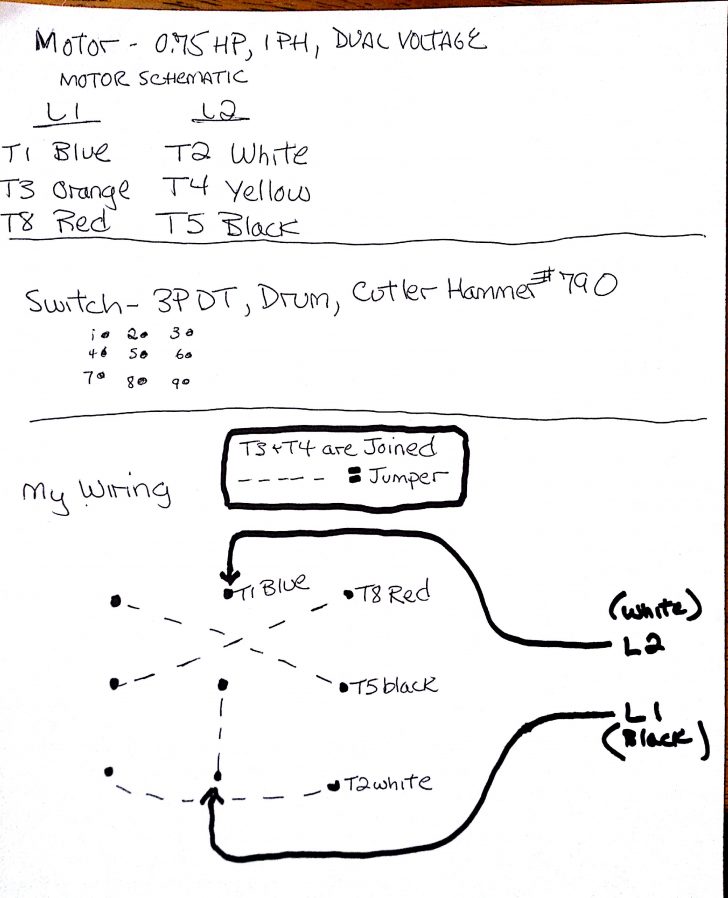 Motor - 0.75 HP, 1 PH, DUAL VOLTAGE
MOTOR SCHEMATIC
L1 L2
T1 Blue T2 White
T3 Orange T4 Yellow
T8 Red T5 Black
Switch - 3PDT, Drum, Cutler Hammer #790
1 2 3
4 5 6
7 8 9
T3 + T4 are Joined
- - - - - = Jumper
My Wiring
T1 Blue T8 Red
(White)
L2
T5 black
L1
(Black)
T2 white